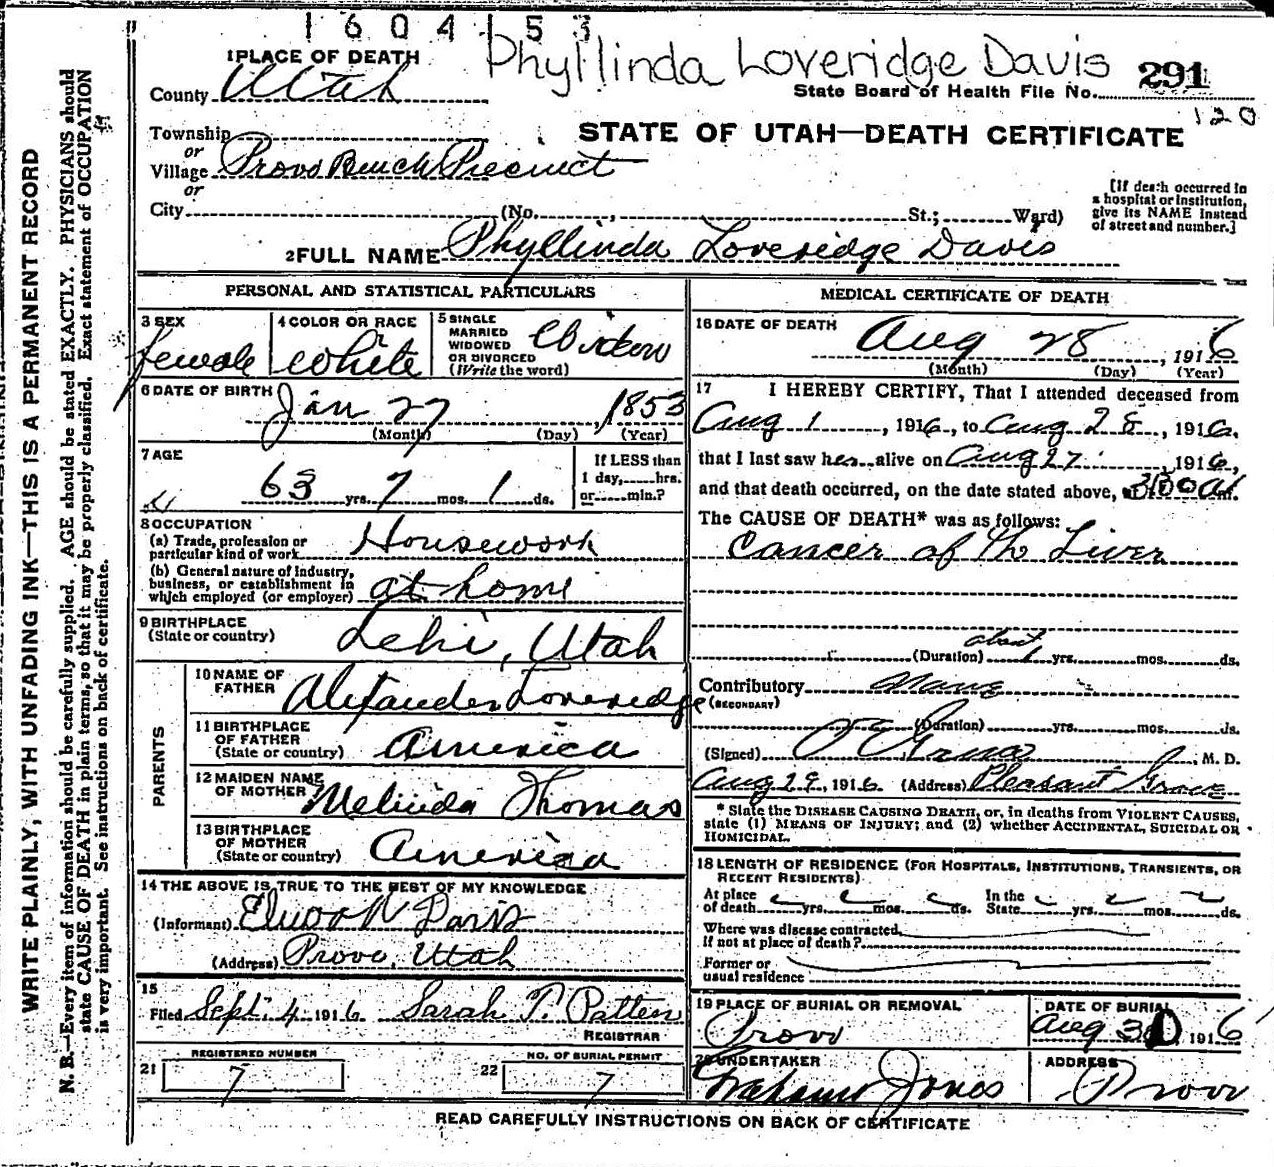 1604153
Phyllinda Loveridge Davis 291
State Board of Health File No.
120
1 PLACE OF DEATH
County Utah
STATE OF UTAH—DEATH CERTIFICATE
Township
or
Village Provo Bench Precinct
or
City (No. , St.; Ward)
[If death occurred in
a hospital or institution,
give its NAME instead
of street and number.]
2 FULL NAME Phyllinda Loveridge Davis
PERSONAL AND STATISTICAL PARTICULARS
3 SEX
female
4 COLOR OR RACE
White
5 SINGLE
MARRIED
WIDOWED
OR DIVORCED
(Write the word)
Widow
6 DATE OF BIRTH Jan 27, 1853
(Month) (Day) (Year)
7 AGE
63 yrs. 7 mos. 1 ds.
If LESS than
1 day, hrs.
or min.?
8 OCCUPATION
(a) Trade, profession or
particular kind of work Housework
(b) General nature of Industry,
business, or establishment in
which employed (or employer) at home
9 BIRTHPLACE
(State or country) Lehi, Utah
PARENTS
10 NAME OF
FATHER Alexander Loveridge
11 BIRTHPLACE
OF FATHER
(State or country) America
12 MAIDEN NAME
OF MOTHER Melinda Thomas
13 BIRTHPLACE
OF MOTHER
(State or country) America
14 THE ABOVE IS TRUE TO THE BEST OF MY KNOWLEDGE
(Informant) Davis
(Address) Provo, Utah
15
Filed Sept. 4 1916 Sarah T. Patten
REGISTRAR
REGISTERED NUMBER
21 7
NO. OF BURIAL PERMIT
22 7
MEDICAL CERTIFICATE OF DEATH
16 DATE OF DEATH Aug 28, 1916
(Month) (Day) (Year)
17 I HEREBY CERTIFY, That I attended deceased from
Aug 1, 1916, to Aug 28, 1916.
that I last saw her alive on Aug 27, 1916,
and that death occurred, on the date stated above, at 3:00 a.m.
The CAUSE OF DEATH* was as follows:
Cancer of the Liver
(Duration) about 1 yrs. mos. ds.
Contributory
(SECONDARY)
(Duration) yrs. mos. ds.
(Signed) , M. D.
Aug 29, 1916. (Address) Pleasant Grove
* State the DISEASE CAUSING DEATH, or, in deaths from VIOLENT CAUSES,
state (1) MEANS OF INJURY; and (2) whether ACCIDENTAL, SUICIDAL OR
HOMICIDAL.
18 LENGTH OF RESIDENCE (FOR HOSPITALS, INSTITUTIONS, TRANSIENTS, OR
RECENT RESIDENTS)
At place
of death yrs. mos. ds. In the
State yrs. mos. ds.
Where was disease contracted,
If not at place of death?
Former or
usual residence
19 PLACE OF BURIAL OR REMOVAL
Provo
DATE OF BURIAL
Aug 30, 1916
20 UNDERTAKER
Jones
ADDRESS
Provo
READ CAREFULLY INSTRUCTIONS ON BACK OF CERTIFICATE
WRITE PLAINLY, WITH UNFADING INK—THIS IS A PERMANENT RECORD
N. B.—Every item of information should be carefully supplied. AGE should be stated EXACTLY. PHYSICIANS should
state CAUSE OF DEATH in plain terms, so that it may be properly classified. Exact statement of OCCUPATION
is very important. See instructions on back of certificate.